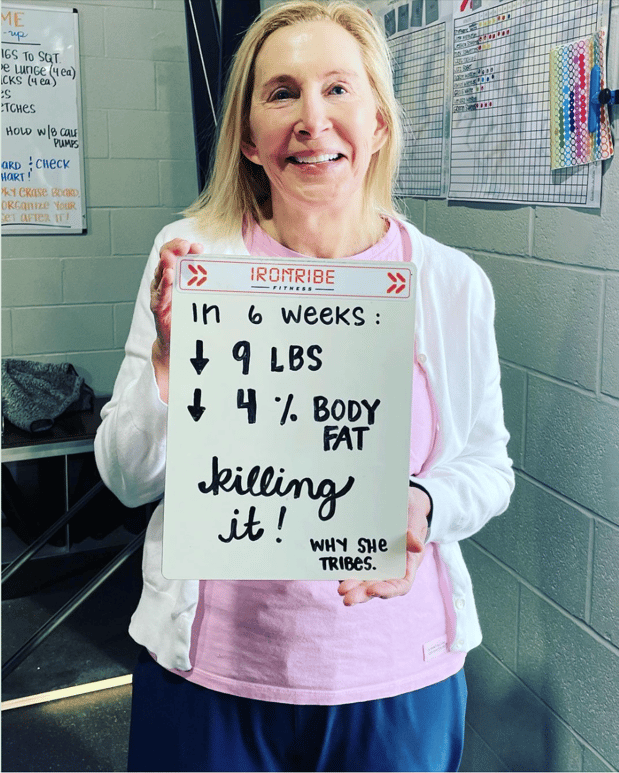 ME
-up
IGS TO SQT
E LUNGE (4 ea)
CKS (4 ea)
TCHES
HOLD W/8 CALF
PUMPS
ARD & CHECK
HART!
RY ERASE BOARD
ORGANIZE YOUR
SET AFTER IT!
IRONTRIBE
FITNESS
In 6 weeks:
↓ 9 LBS
↓ 4 % BODY
FAT
killing
it!
WHY SHE
TRIBES.